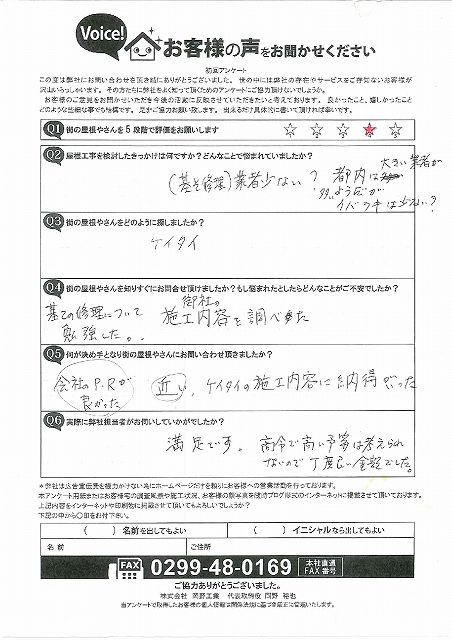 Voice!
お客様の声をお聞かせください
初回アンケート
この度は弊社にお問い合わせを頂き誠にありがとうございました。世の中には弊社の存在やサービスをご存知ないお客様が
沢山いらっしゃいます。その方たちに弊社をよく知って頂くためのアンケートにご協力頂けないでしょうか。
お客様のご意見をお聞かせいただき今後の活動に反映させていただきたいと考えております。良かったこと、嬉しかったこと
どのような些細な事でも結構です。是非ご協力お願い致します。出来るだけ具体的に書いて頂ければ幸いです。
Q1 街の屋根やさんを5段階で評価をお願いします
☆ ☆ ☆ ★ ☆
Q2 屋根工事を検討したきっかけは何ですか?どんなことで悩まれていましたか?
(基礎修理)業者少ない?
都内は大きい業者が
多いようだが
イバラキは少ない?
Q3 街の屋根やさんをどのように探しましたか?
ケイタイ
Q4 街の屋根やさんを知りすぐにお問合せ頂けましたか?もし悩まれたとしたらどんなことがご不安でしたか?
基その修理について
勉強した。.
御社の
施工内容を調べた
Q5 何が決め手となり街の屋根やさんにお問い合わせ頂きましたか?
会社のP.Rが
良かった
近い、ケイタイの施工内容に納得がいった
Q6 実際に弊社担当者がお伺いしていかがでしたか?
満足です。高令で高い予算は考えられ
ないので丁度良い金額でした。
*弊社は広告宣伝費を極力かけない為にホームページだけを頼りにお客様への営業活動を行っております。
本アンケート用紙またはお客様宅の調査風景や施工状況、お客様の顔写真を匿名ブログ形式のインターネットに掲載させて頂いております。
上記内容をインターネットや印刷物に掲載させて頂いてもよろしいでしょうか?
下記の中から〇印をお付下さい。
( )名前を出してもよい ( )イニシャルなら出してもよい
名前 ご住所
FAX 0299-48-0169 本社直通
FAX番号
ご協力ありがとうございました。
株式会社 岡野工業 代表取締役 岡野 裕也
当アンケートで取得したお客様の個人情報は関係法規に基づき厳正に管理いたします。